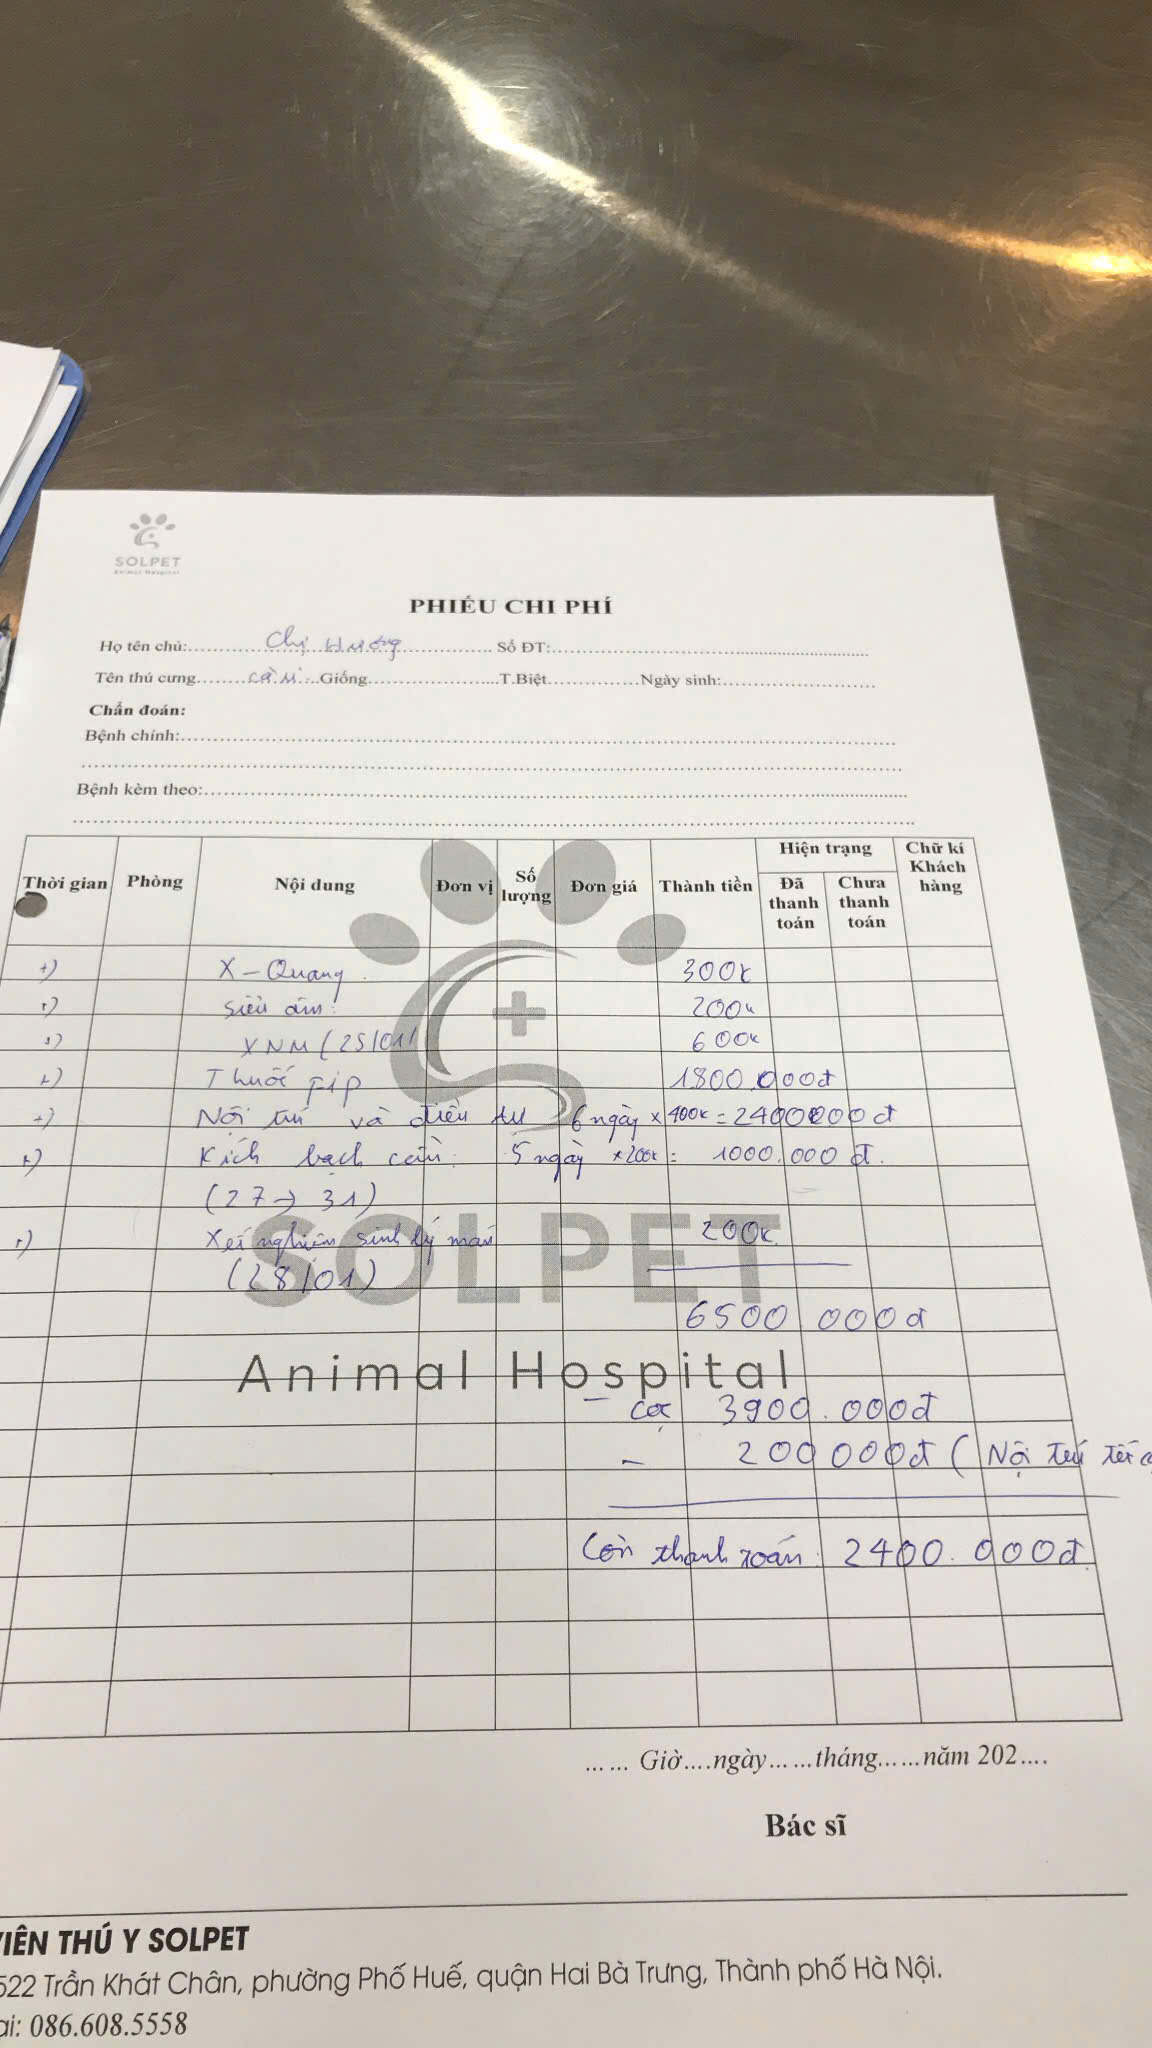 SOLPET
Animal Hospital
PHIẾU CHI PHÍ
Họ tên chủ: Chị Hương Số ĐT:
Tên thú cưng Giống T.Biệt Ngày sinh:
Chẩn đoán:
Bệnh chính:
Bệnh kèm theo:
Thời gian Phòng Nội dung Đơn vị Số lượng Đơn giá Thành tiền Hiện trạng Đã thanh toán Chưa thanh toán Chữ kí Khách hàng
+) X-Quang 300k
+) Siêu âm: 200k
+) XNM (25/01) 600k
+) Thuốc fip 1800.000đ
+) Nội trú và điều trị 6 ngày x 400k = 2400000đ
+) Kích bạch cầu: 5 ngày x 200k = 1000.000đ.
(27 → 31)
+) Xét nghiệm sinh lý máu 200k
(28/01)
SOLPET
6500 000đ
Animal Hospital
- cọc 3900.000đ
- 200 000đ (Nội trú tết
Còn thanh toán: 2400.000đ
...... Giờ....ngày......tháng......năm 202....
Bác sĩ
VIÊN THÚ Y SOLPET
522 Trần Khát Chân, phường Phố Huế, quận Hai Bà Trưng, Thành phố Hà Nội.
ai: 086.608.5558